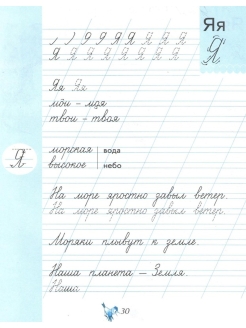 Яя
Я
Я Я Я Я Я Я Я
Я Я Я Я Я Я Я Я Я
Яя Яя
мои – моя
твои – твоя
Я
морская вода
высокое небо
На море яростно завыл ветер.
На море яростно завыл ветер.
Моряки плывут к земле.
Наша планета – Земля.
Наша
30